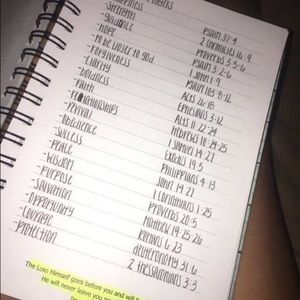 -strength psalm 37:4
-guidance 2 chronicles 16:9
-hope proverbs 3:5-6
-to be closer to god psalm 3:2-6
-forgiveness 1 john 1:9
-clarity psalm 103:8-12
-boldness acts 26:18
-faith ephesians 3:12
-relationships acts 11:22-24
-revival hebrews 10:24-25
-obedience 1 samuel 14:27
-success exodus 19:5
-peace philippians 4:13
-wisdom john 14:27
-purpose 1 corinthians 1:25
-salvation proverbs 20:5
-opportunity matthew 19:25-26
-courage romans 6:23
-protection deuteronomy 31:6
2 thessalonians 3:3
The LORD Himself goes before you and will
He will never leave you